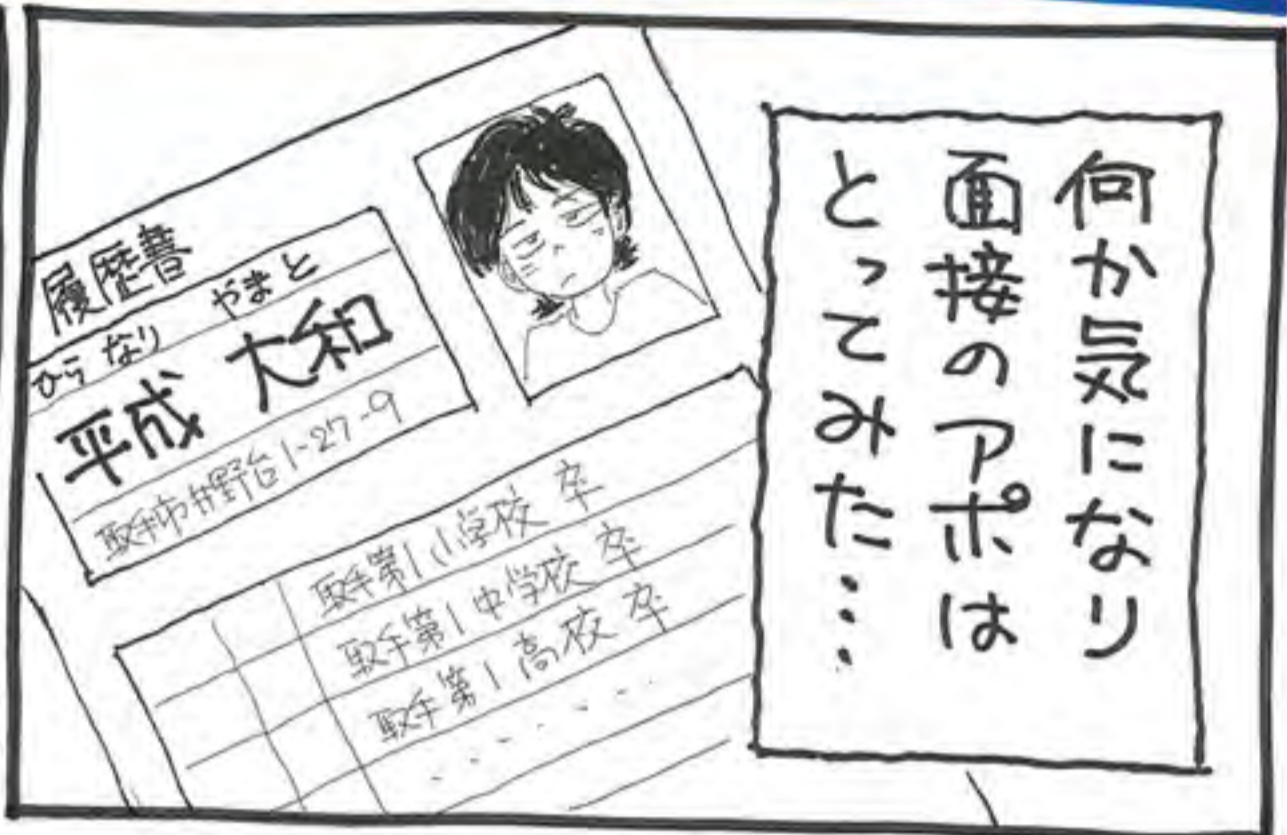 何か気になり
面接のアポは
とってみた…
履歴書
ひら なり やまと
平成 大和
取手市井野台1-27-9
取手第1小学校 卒
取手第1中学校 卒
取手第1高校 卒
.......